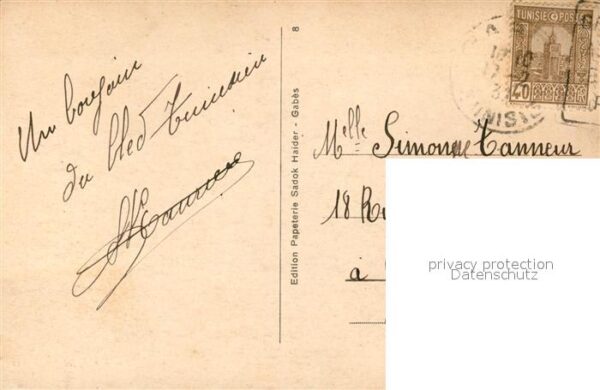 Un bonjour
du bled Tunisien
8
Edition Papeterie Sadok Haider - Gabès
TUNISIE POSTES
40
TUNISIE
Melle Simonne Tanneur
18 Ru
à
privacy protection
Datenschutz